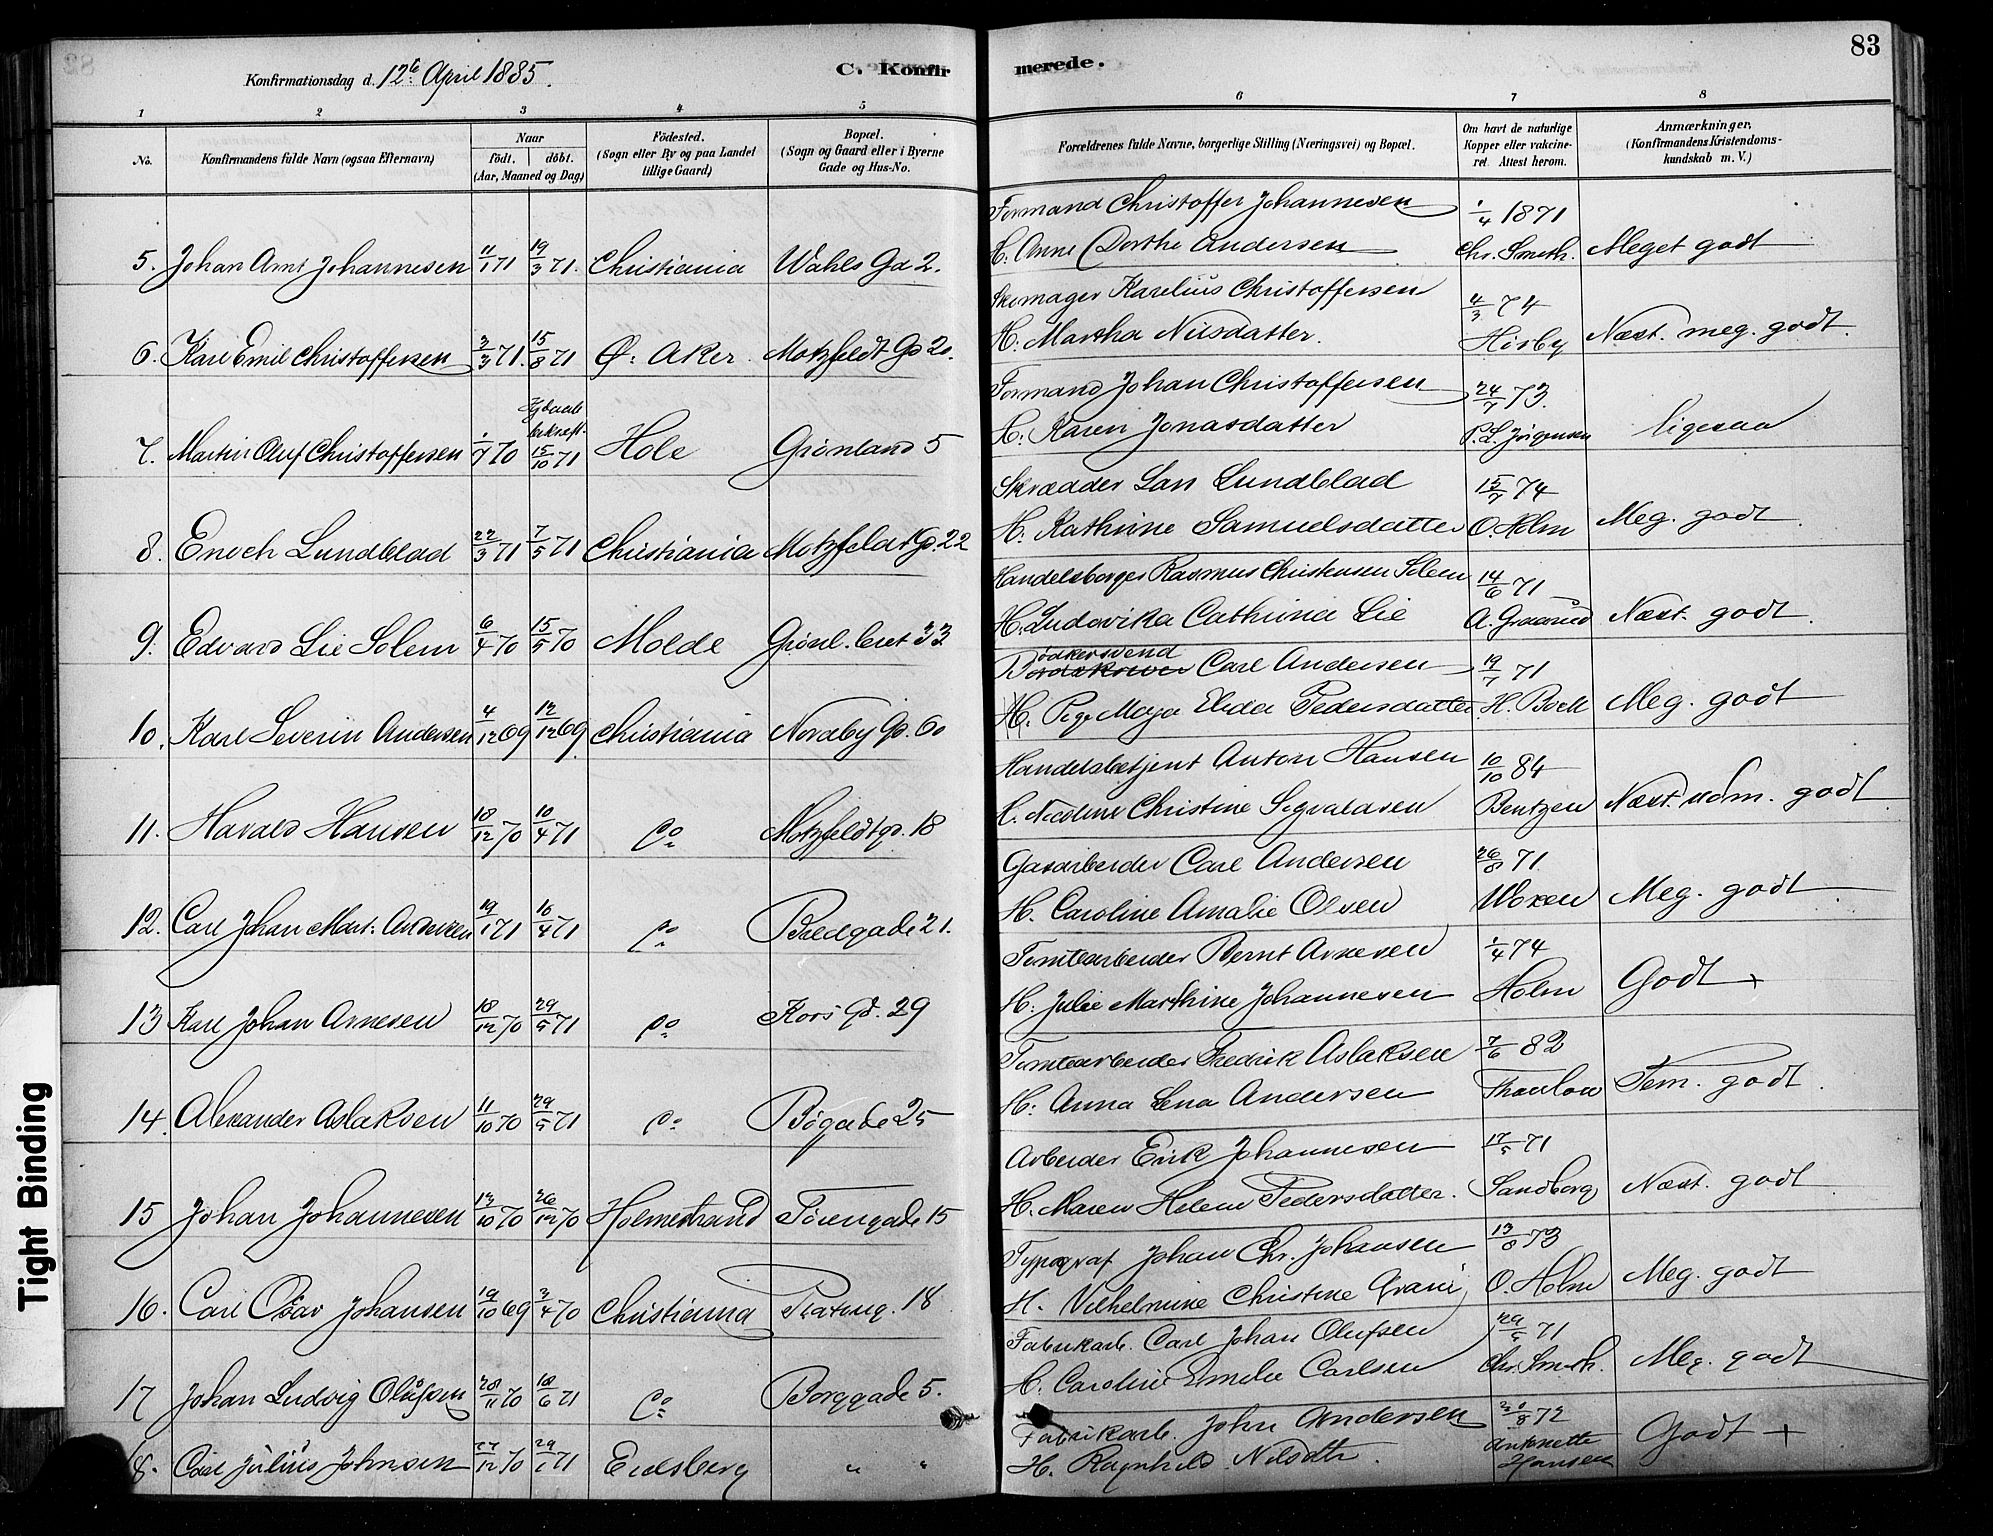 83
Konfirmationsdag d. 12te April 1885.
C. Konfir
merede.
1 2 3 4 5 6 7 8
No.
Konfirmandens fulde Navn (ogsaa Efternavn)
Naar
födt. döbt.
(Aar, Maaned og Dag)
Födested.
(Sogn eller By og paa Landet
tillige Gaard)
Bopæl.
(Sogn og Gaard eller i Byerne
Gade og Hus-No.
Forældrenes fulde Navne, borgerlige Stilling (Næringsvei) og Bopæl.
Om havt de naturlige
Kopper eller vakcine-
ret. Attest herom.
Anmærkninger.
(Konfirmandens Kristendoms-
kundskab m. V.)
Formand Christoffer Johannesen 1/4 1871
5. Johan Arnt Johannesen 11/1 71 19/3 71. Christiania Wahls Gd 2. H. Anne Dorthe Andersen Chr. Smith. Meget godt
Skomager Karelius Christoffersen 4/3 74
6. Karl Emil Christoffersen 3/3 71. 15/8 71 Ø. Aker. Motzfeldt Gd 20. H. Martha Nilsdatter. Hisby Næst. meg. godt.
Formand Johan Christoffersen 24/7 73.
7. Martin Oluf Christoffersen 1/7 70 Hjdaab bekræft. 15/10 71 Hole Grønland 5 H. Karen Jonasdatter P. L. Jørgensen ligesaa
Skrædder Lars Lundblad 15/7 74
8. Enoch Lundblad 22/3 71 7/5 71 Christiania Motzfeldt Gd. 22 H. Kathrine Samuelsdatter O. Holm Meg. godt.
Handelsborger Rasmus Christensen Solem 14/6 71
9. Edvard Lie Solem 6/4 70 15/5 70 Molde Grønl. leret 33 H. Ludovika Cathrina Lie A. Graarud Næst. godt.
Bødkersvend Carl Andersen 19/7 71
10. Karl Severin Andersen 4/12 69 12/12 69. Christiania Nordby Gd. 60 H. Pige Maja Elida Pedersdatter. H. Boek Meg. godt
Handelsbetjent Anton Hansen 10/10 84
11. Harald Hansen 18/12 70 10/4 71 do Motzfeldtgd. 18 H. Nicoline Christine Sigvaldsen Bentzen Næst. udm. godt
Gasarbeider Carl Andersen 26/8 71.
12. Carl Johan Mart. Andersen 19/1 71 16/4 71 do Bredgade 21. H. Caroline Amalie Olsen Woxen Meg. godt
Tomtearbeider Bernt Arnesen 1/4 74
13 Karl Johan Arnesen 18/12 70 29/5 71 do Kors Gd. 29 H. Julie Marthine Johannesen Holm Godt +
Tomtearbeider Fredrik Aslaksen 7/6 82
14. Alexander Aslaksen 11/10 70 29/5 71 do Bøgade 25 H. Anna Lena Andersen Thaulow Tem. godt.
Arbeider Erik Johannesen 17/5 71
15 Johan Johannesen 13/10 70 26/12 70 Holmestrand Tøiengade 15 H. Maren Helene Pedersdatter. Sandberg Næst. godt
Typograf Johan Chr. Johansen 13/8 73
16. Carl Oscar Johansen 19/10 69 3/4 70 Christiania Platoug. 18 H. Vilhelmine Christine Gran O. Holm Meg. godt
Fabrikarb. Carl Johan Olufsen 29/5 71
17 Johan Ludvig Olufsen 28/11 70 18/6 71 do Borggade 5. H. Caroline Emelie Carlsen Chr. Smith. Meg. godt
Fabrikarb. John Andersen 20/8 72
8. Carl Julius Johnsen 27/12 70 29/1 71 Eidsberg " " H. Ragnhild Nilsdtr. Antonette Hansen Godt +
Tight Binding